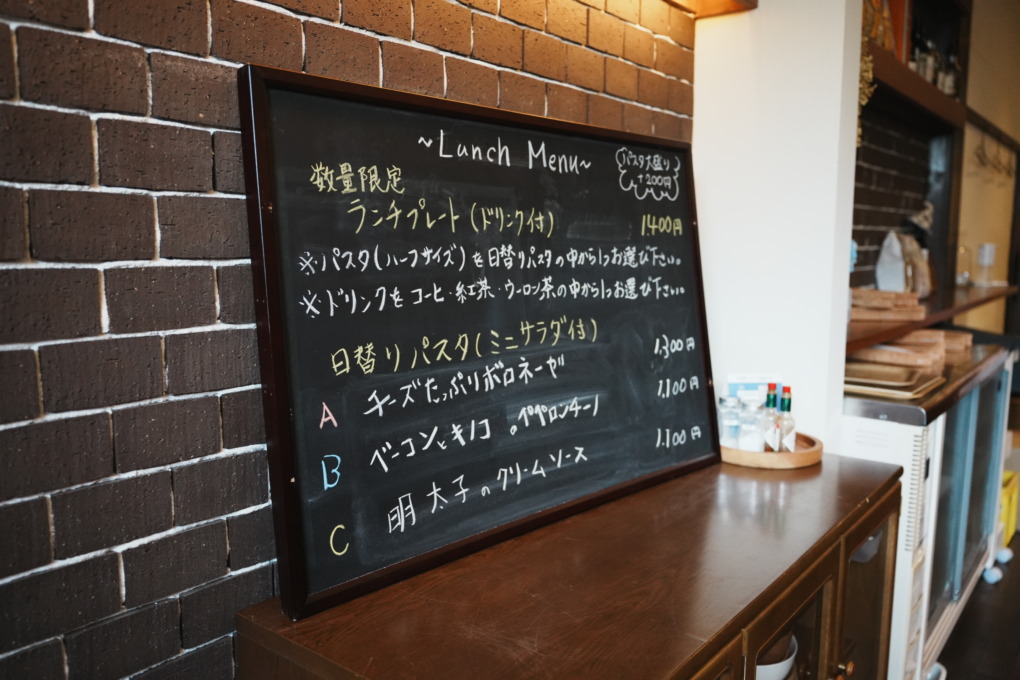 ~Lunch Menu~
パスタ大盛り
+200円
数量限定
ランチプレート(ドリンク付) 1400円
※パスタ(ハーフサイズ)を日替りパスタの中から1つお選び下さい。
※ドリンクをコーヒー・紅茶・ウーロン茶の中から1つお選び下さい。
日替りパスタ(ミニサラダ付)
A チーズたっぷりボロネーゼ 1,300円
B ベーコンとキノコのペペロンチーノ 1,100円
C 明太子のクリームソース 1,100円